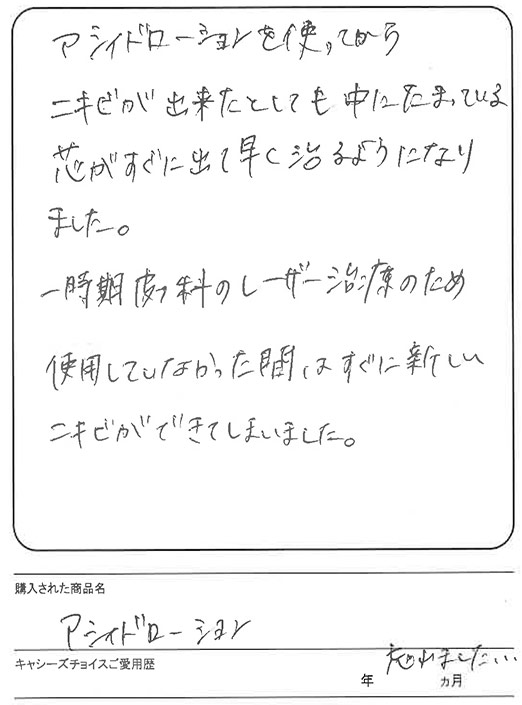 アシィドローションを使ってから
ニキビが出来たとしても中にたまっている
芯がすぐに出て早く治るようになり
ました。
一時期皮フ科のレーザー治療のため
使用していなかった間はすぐに新しい
ニキビができてしまいました。
購入された商品名
アシィドローション
キャシーズチョイスご愛用歴
年 カ月
忘れました...